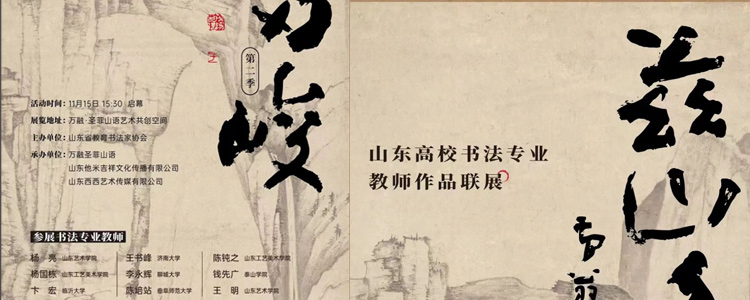 第二季
峻
活动时间：11月15日 15:30 启幕
展览地址：万融·圣菲山语艺术共创空间
主办单位：山东省教育书法家协会
承办单位：万融圣菲山语
山东他米吉祥文化传播有限公司
山东西西艺术传媒有限公司
参展书法专业教师
杨 亮 山东艺术学院 王书峰 济南大学 陈钝之 山东工艺美术学院
杨国栋 山东工艺美术学院 李永辉 聊城大学 钱先广 泰山学院
卞 宏 临沂大学 陈培站 曲阜师范大学 王 明 山东艺术学院
山东高校书法专业
教师作品联展
兹山